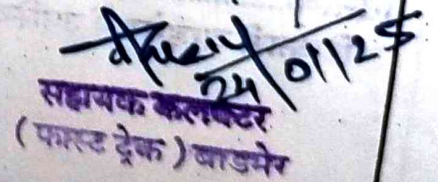 24/01/25
सहायक कलक्टर
( फास्ट ट्रेक ) बाडमेर